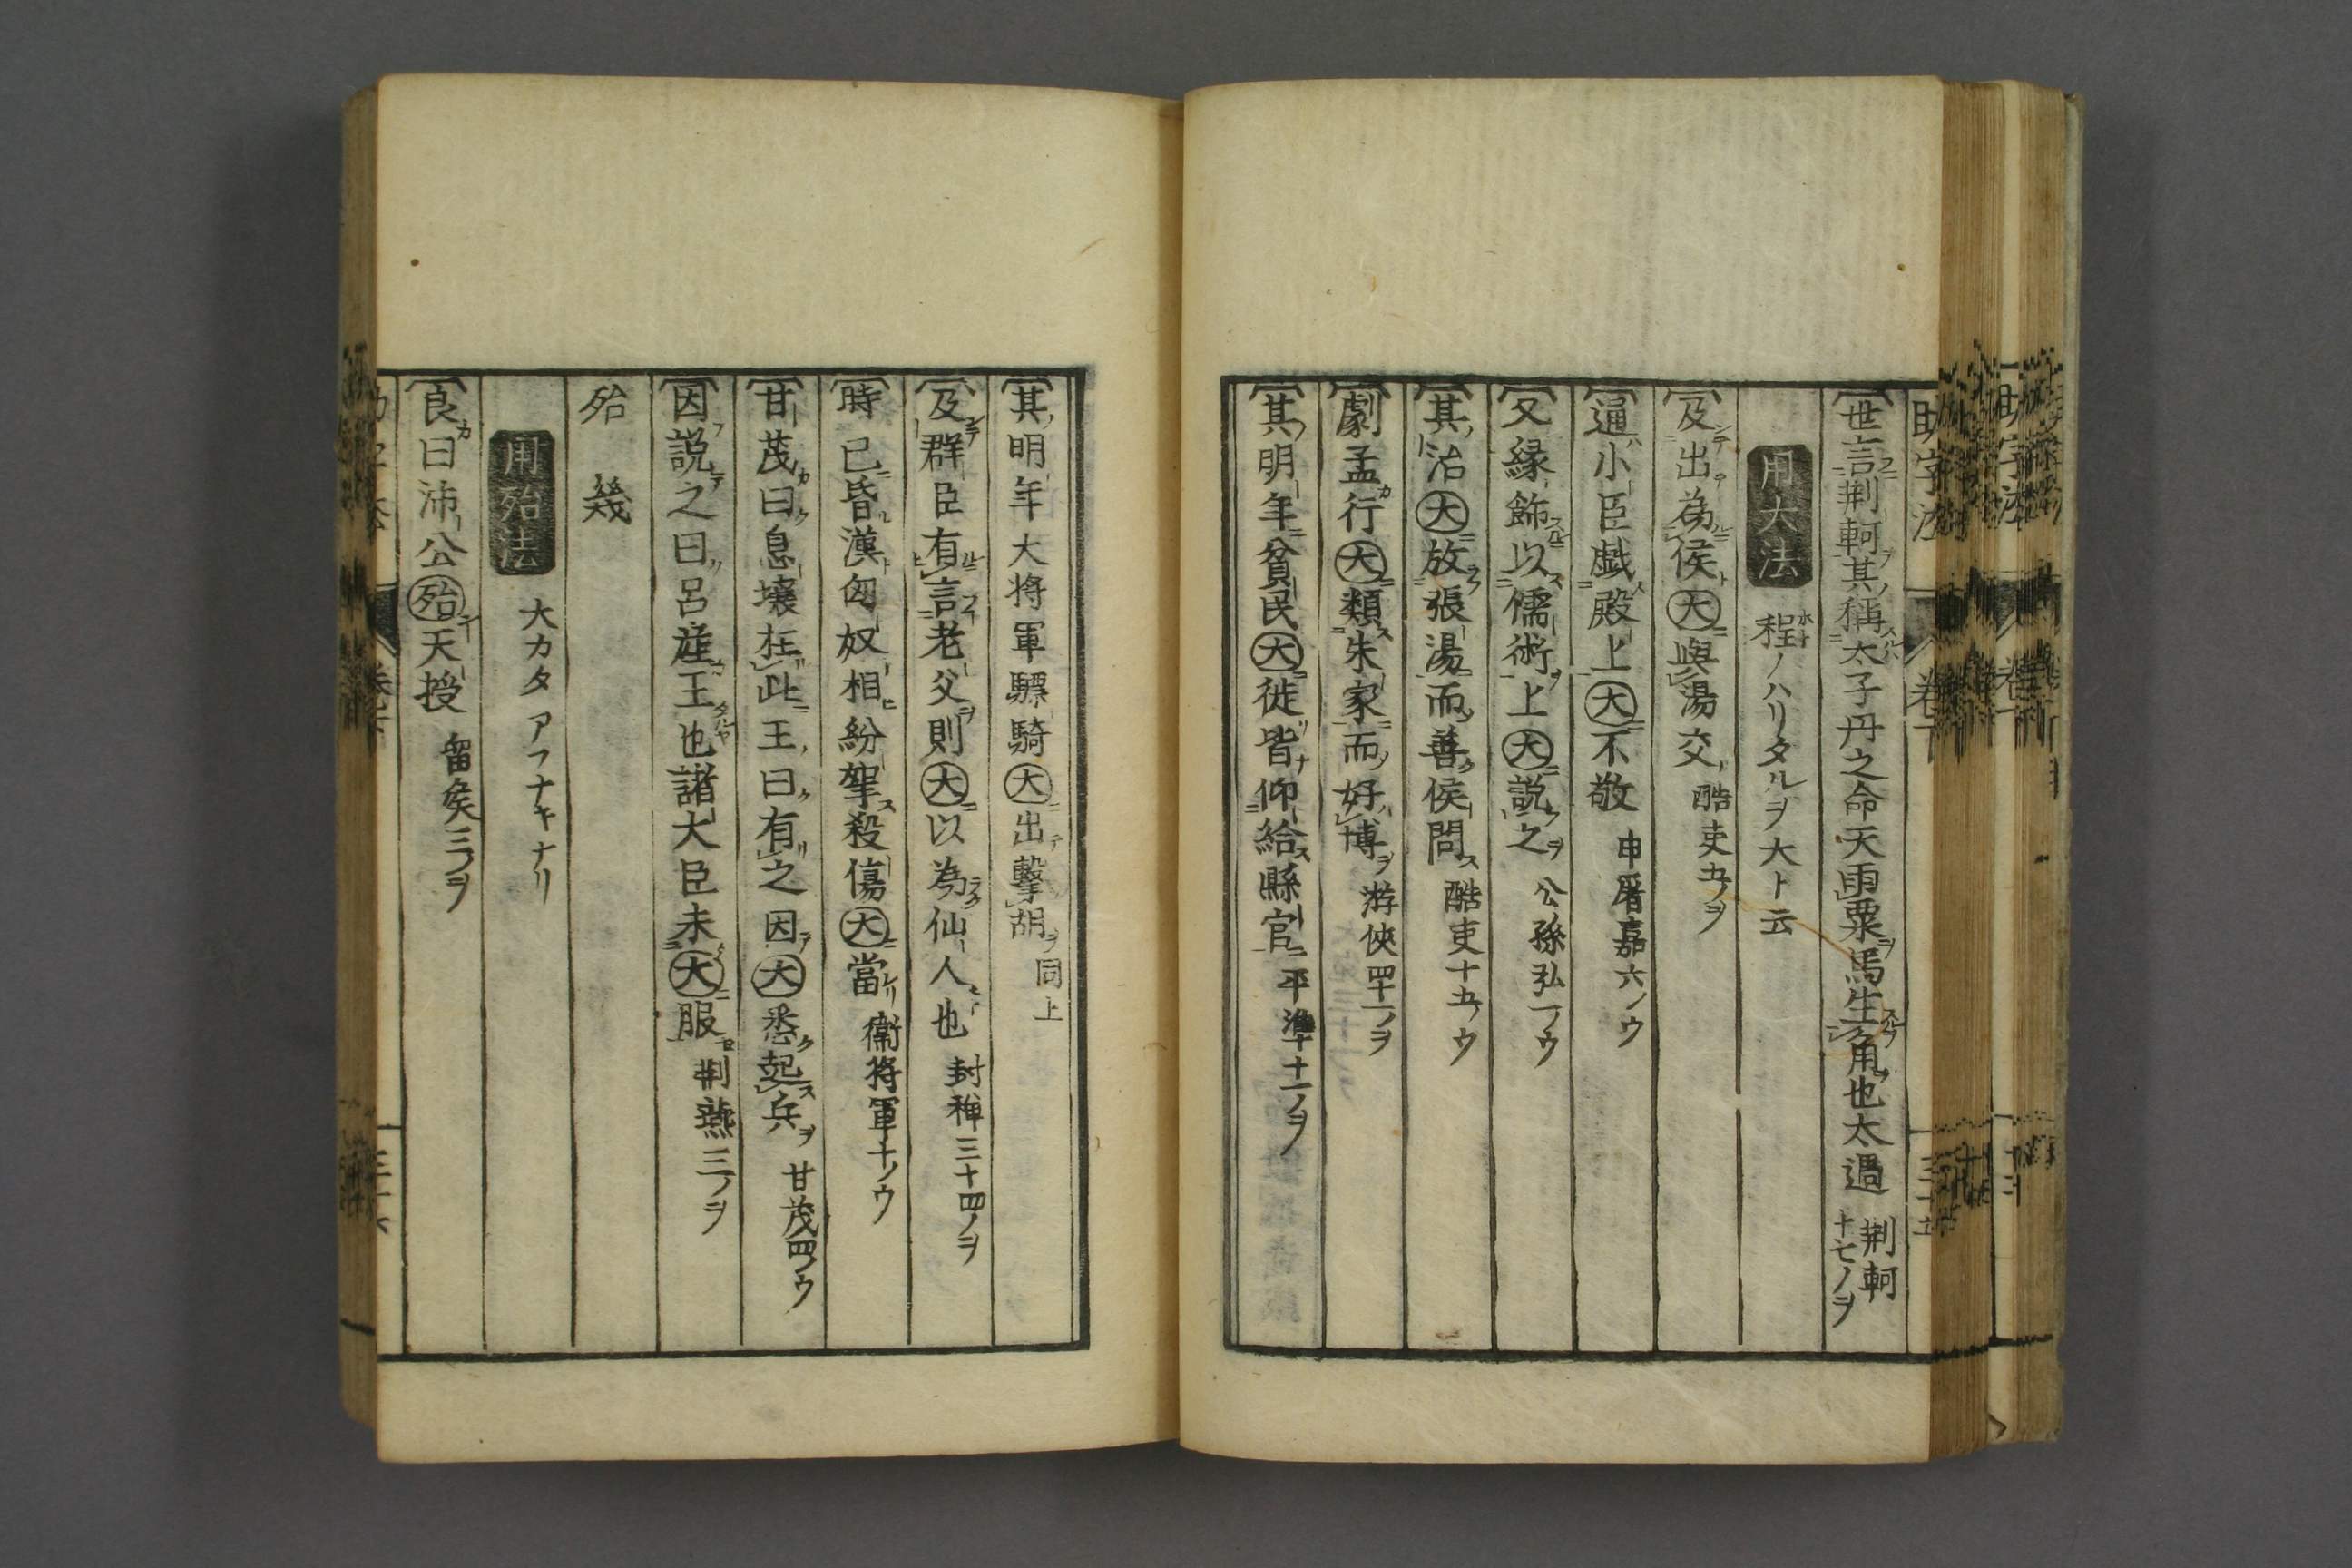 世言荆軻其稱太子丹之命天雨粟馬生角也太過 荆軻十七ノヲ
用大法 程ノハリタルヲ大ト云
及出為侯大與湯交 酷吏五ノヲ
通小臣戯殿上大不敬 申屠嘉六ノウ
又縁飾以儒術上大説之 公孫弘一ノウ
其治大放張湯而善侯問 酷吏十五ノウ
劇孟行大類朱家而好博 游侠四十一ノヲ
其明年貧民大徙皆仰給縣官 平準十一ノヲ
其明年大将軍驃騎大出撃胡 同上
及群臣有言老父則大以為仙人也 封禅三十四ノヲ
時已昏漢匈奴相紛挐殺傷大當 衛将軍十ノウ
甘茂曰息壌在此王曰有之因大悉起兵 甘茂四ノウ
因説之曰呂産王也諸大臣未大服 荆燕三ノヲ
殆 幾
用殆法 大カタアフナキナリ
良曰沛公殆天授 留矦三ノヲ